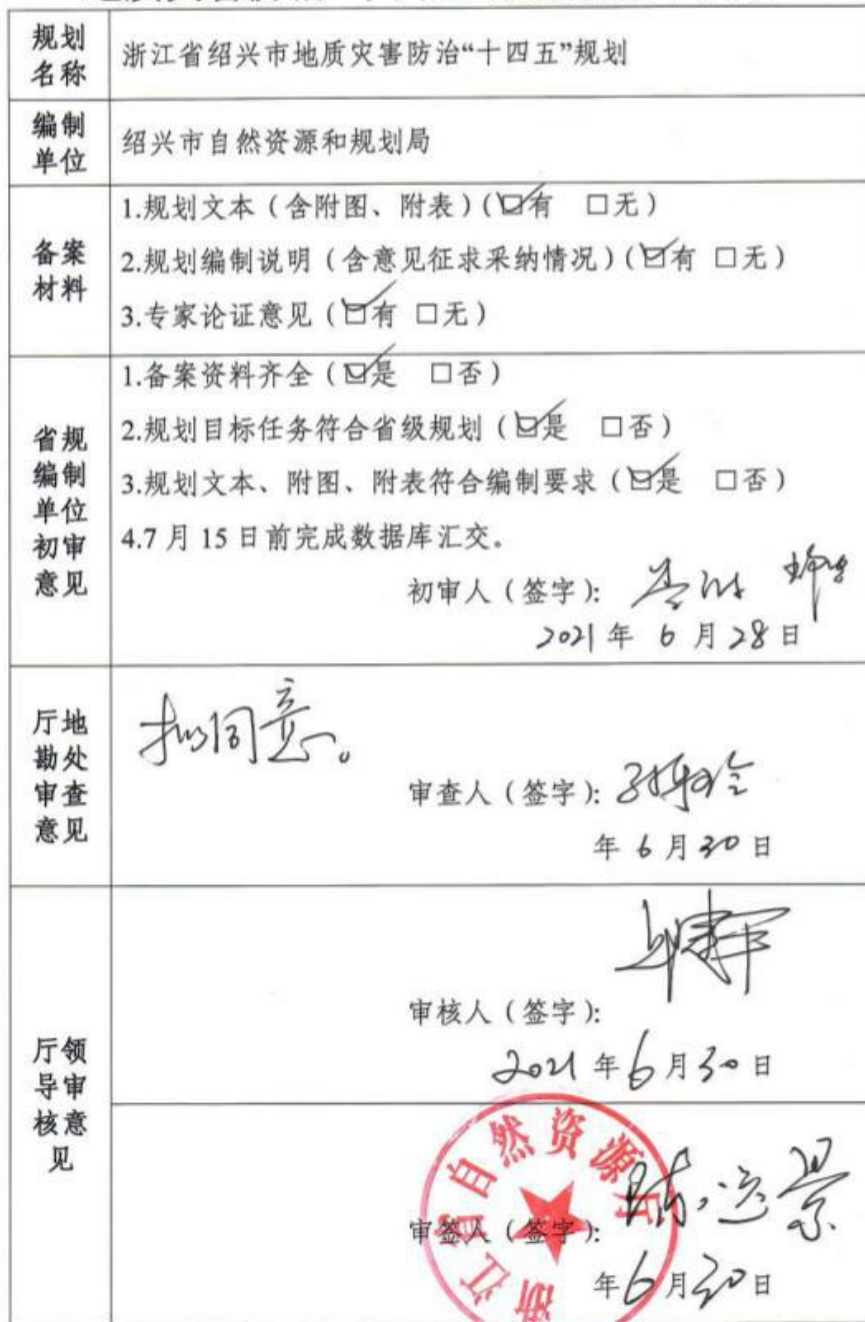 规划名称
浙江省绍兴市地质灾害防治“十四五”规划
编制单位
绍兴市自然资源和规划局
备案材料
1.规划文本（含附图、附表）（☑有 □无）
2.规划编制说明（含意见征求采纳情况）（☑有 □无）
3.专家论证意见（☑有 □无）
省规编制单位初审意见
1.备案资料齐全（☑是 □否）
2.规划目标任务符合省级规划（☑是 □否）
3.规划文本、附图、附表符合编制要求（☑是 □否）
4.7月15日前完成数据库汇交。
初审人（签字）：
2021年 6月28日
厅地勘处审查意见
拟同意。
审查人（签字）：
年 6月30日
厅领导审核意见
审核人（签字）：
2021年6月30日
浙江省自然资源厅
审签人（签字）：
年6月30日